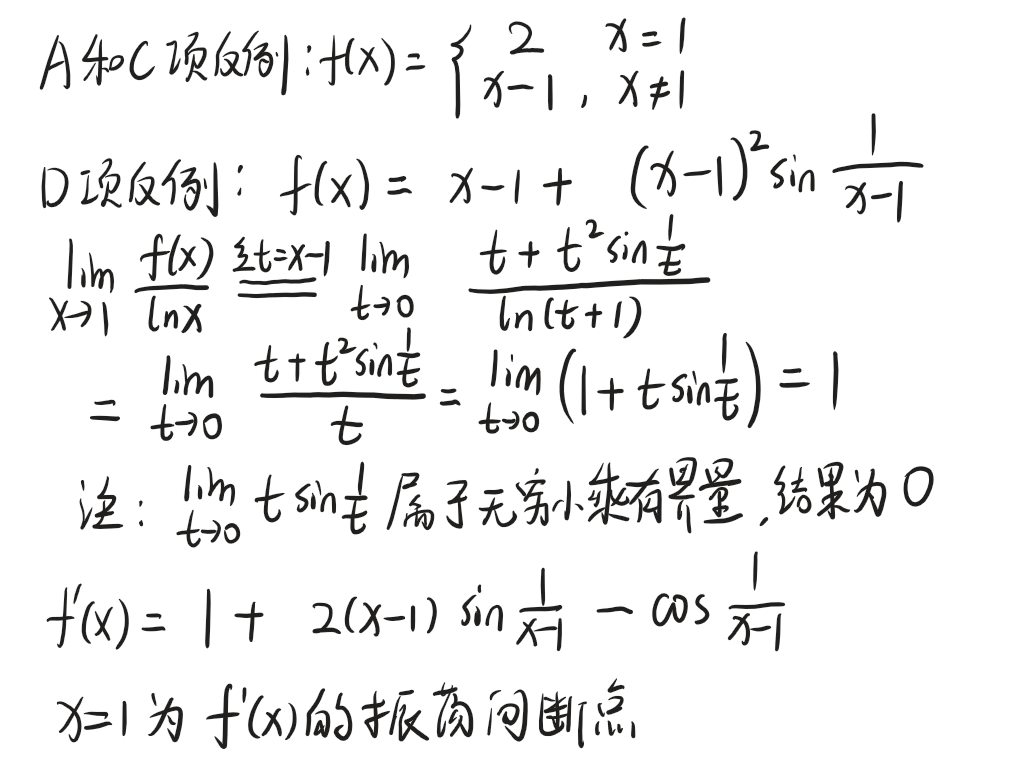 A和C项反例: f(x) = { 2 x = 1
x-1 , x ≠ 1
D项反例: f(x) = x-1 + (x-1)² sin 1/(x-1)
lim x→1 f(x)/lnx 令t=x-1 == lim t→0 (t + t² sin 1/t)/(ln(t+1))
= lim t→0 (t + t² sin 1/t)/t = lim t→0 (1 + t sin 1/t) = 1
注: lim t→0 t sin 1/t 属于无穷小乘有界量,结果为0
f'(x) = 1 + 2(x-1) sin 1/(x-1) - cos 1/(x-1)
x=1 为 f'(x) 的振荡间断点